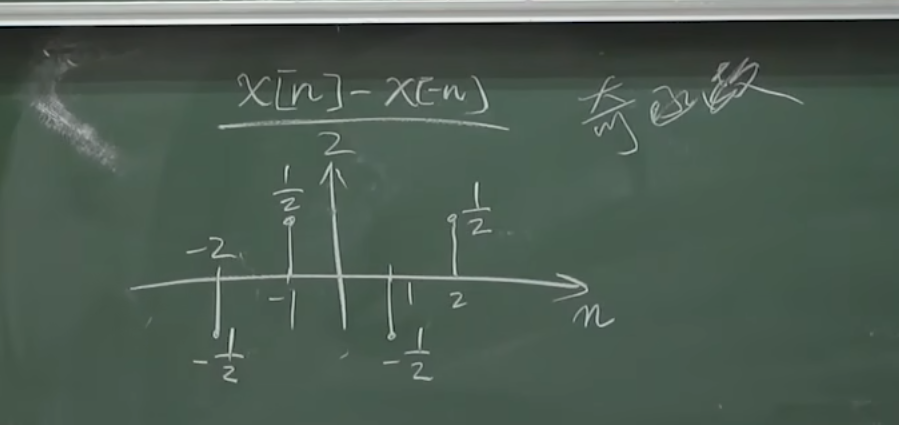 x[n]-x[-n] 奇函数
2
1/2 1/2
-2
-1 1 2
n
-1/2 -1/2